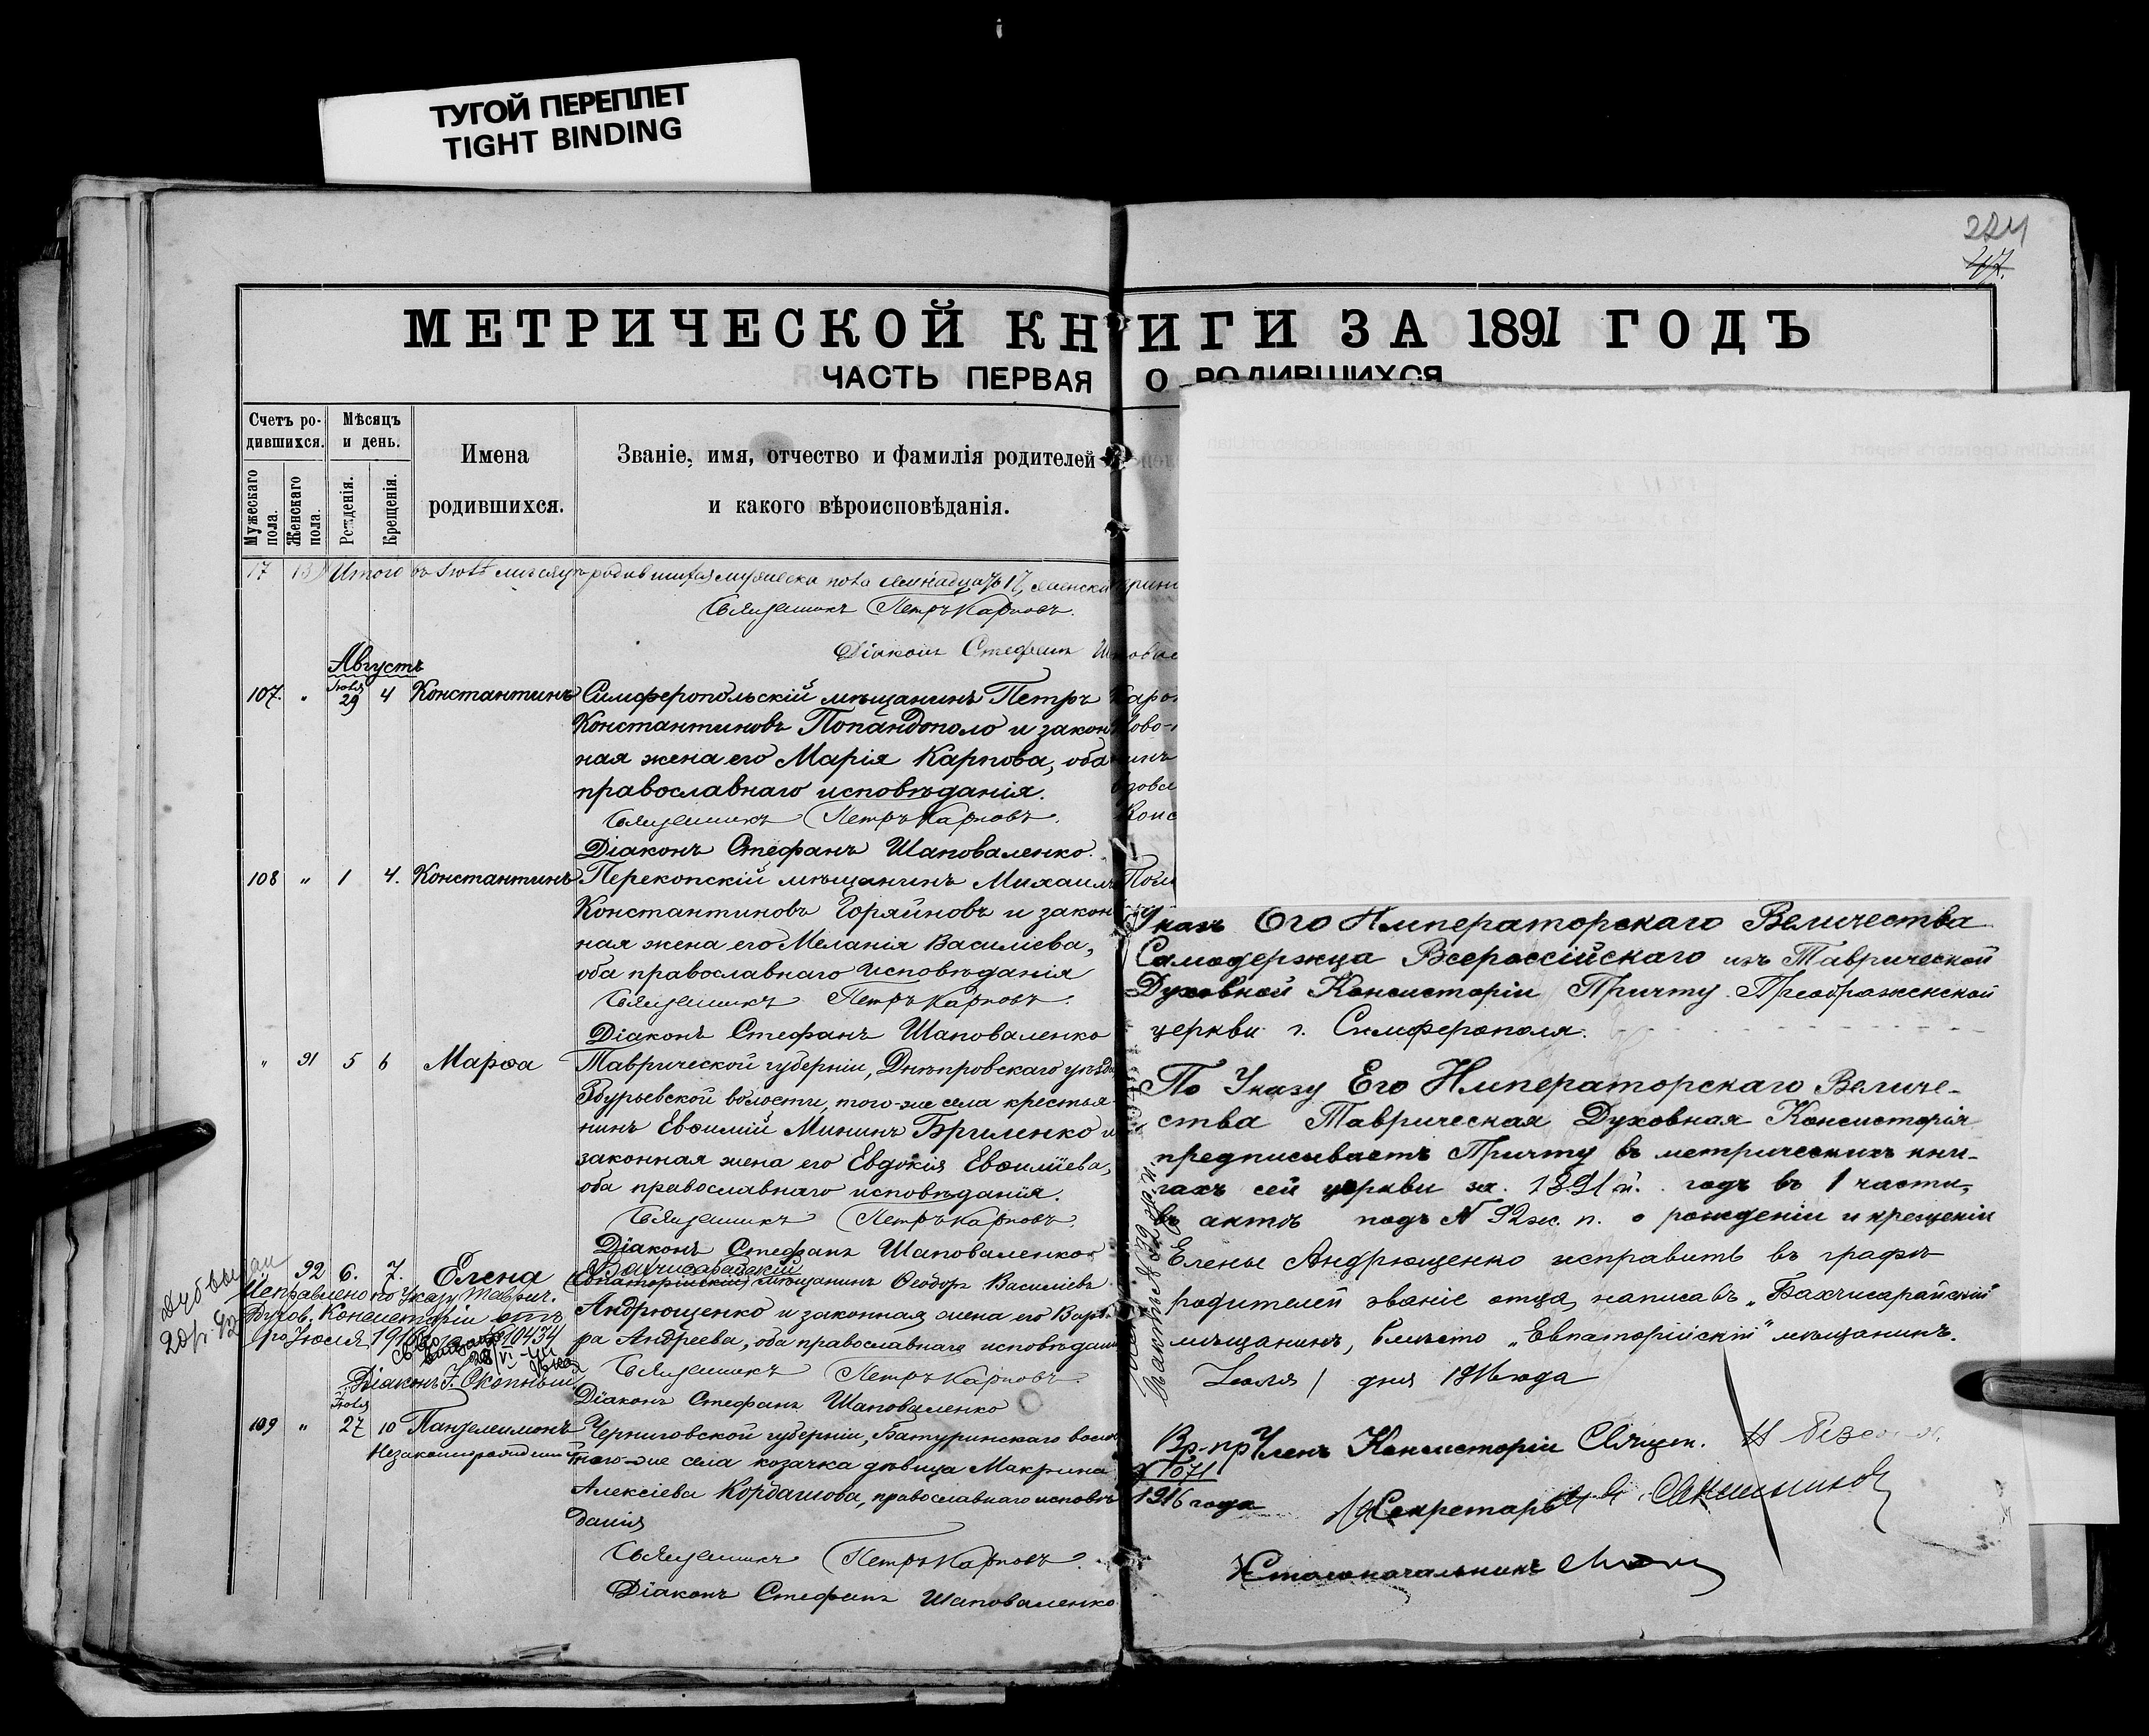 ТУГОЙ ПЕРЕПЛЕТ
TIGHT BINDING
224
47.
МЕТРИЧЕСКОЙ КНИГИ ЗА 1891 ГОДЪ
ЧАСТЬ ПЕРВАЯ О РОДИВШИХСЯ
Счетъ ро-
дившихся.
Мѣсяцъ
и день.
Имена
родившихся.
Званіе, имя, отчество и фамилія родителей
и какого вѣроисповѣданія.
Мужескаго
пола.
Женскаго
пола.
Рожденія.
Крещенія.
17 13 Итого въ Іюлѣ мѣсяцѣ родившихся мужеска пола семнадцать 17, женска
Священникъ Петръ Карповъ.
Діаконъ Стефанъ Шаповале
Августъ
Іюля
107. " 29 4 Константинъ Симферопольскій мѣщанинъ Петръ
Константиновъ Попандополо и закон
ная жена его Марія Карпова, оба
православнаго исповѣданія.
Священникъ Петръ Карповъ.
Діаконъ Стефанъ Шаповаленко.
108 " 1 4. Константинъ Перекопскій мѣщанинъ Михаилъ
Константиновъ Горяйновъ и закон
ная жена его Меланія Василіева,
оба православнаго исповѣданія
Священникъ Петръ Карповъ.
Діаконъ Стефанъ Шаповаленко
" 91 5 6 Марѳа Таврической губерніи, Днѣпровскаго уѣзда
Збурьевской волости, того-же села крестья-
нинъ Евѳимій Мининъ Бриленко и
законная жена его Евдокія Евѳиміева,
оба православнаго исповѣданія.
Священникъ Петръ Карповъ.
Діаконъ Стефанъ Шаповаленко
Бахчисарайскій
92 6. 7. Елена (Евпаторійскій) мѣщанинъ Ѳеодоръ Василіевъ
Андрющенко и законная жена его Варва
ра Андреева, оба православнаго исповѣдані
Священникъ Петръ Карповъ.
Діаконъ Стефанъ Шаповаленко
Исправлено по Указу Таврич.
Духов. Консисторіи отъ
1го Іюля 1916 10434
Діаконъ Скопный
Іюля
109 " 27 10 Пантелеимонъ Черниговской губерніи, Батуринскаго волос
Незаконнорожденный того-же села козачка дѣвица Макрина
Алексіева Кордашова, православнаго исповѣ
данія
Священникъ Петръ Карповъ.
Діаконъ Стефанъ Шаповаленко
Указъ Его Императорскаго Величества
Самодержца Всероссійскаго изъ Таврической
Духовной Консисторіи Причту Преображенской
церкви г. Симферополя.
По Указу Его Императорскаго Величе-
ства Таврическая Духовная Консисторія
предписываетъ Причту въ метрическихъ кни-
гахъ сей церкви за 1891 й. годъ въ 1 части,
въ актѣ подъ № 92 ж. п. о рожденіи и крещеніи
Елены Андрющенко исправить въ графѣ
родителей званіе отца, написавъ „Бахчисарайскій
мѣщанинъ, вмѣсто „Евпаторійскій" мѣщанинъ.
Іюля 1 дня 1916 года
Вр.-пр Членъ Консисторіи Священ. Н
1071
1916 года
Секретарь
Столоначальникъ